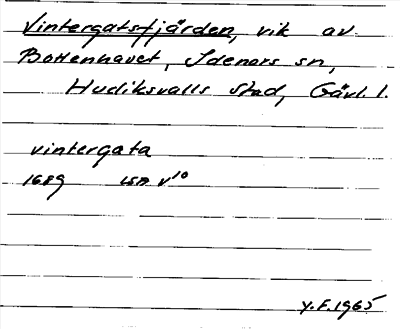 Vintergatsfjärden, vik av
Bottenhavet, Idenors sn,
Hudiksvalls stad, Gävl. l.
vintergata
1689 LSA V10
Y.F. 1965